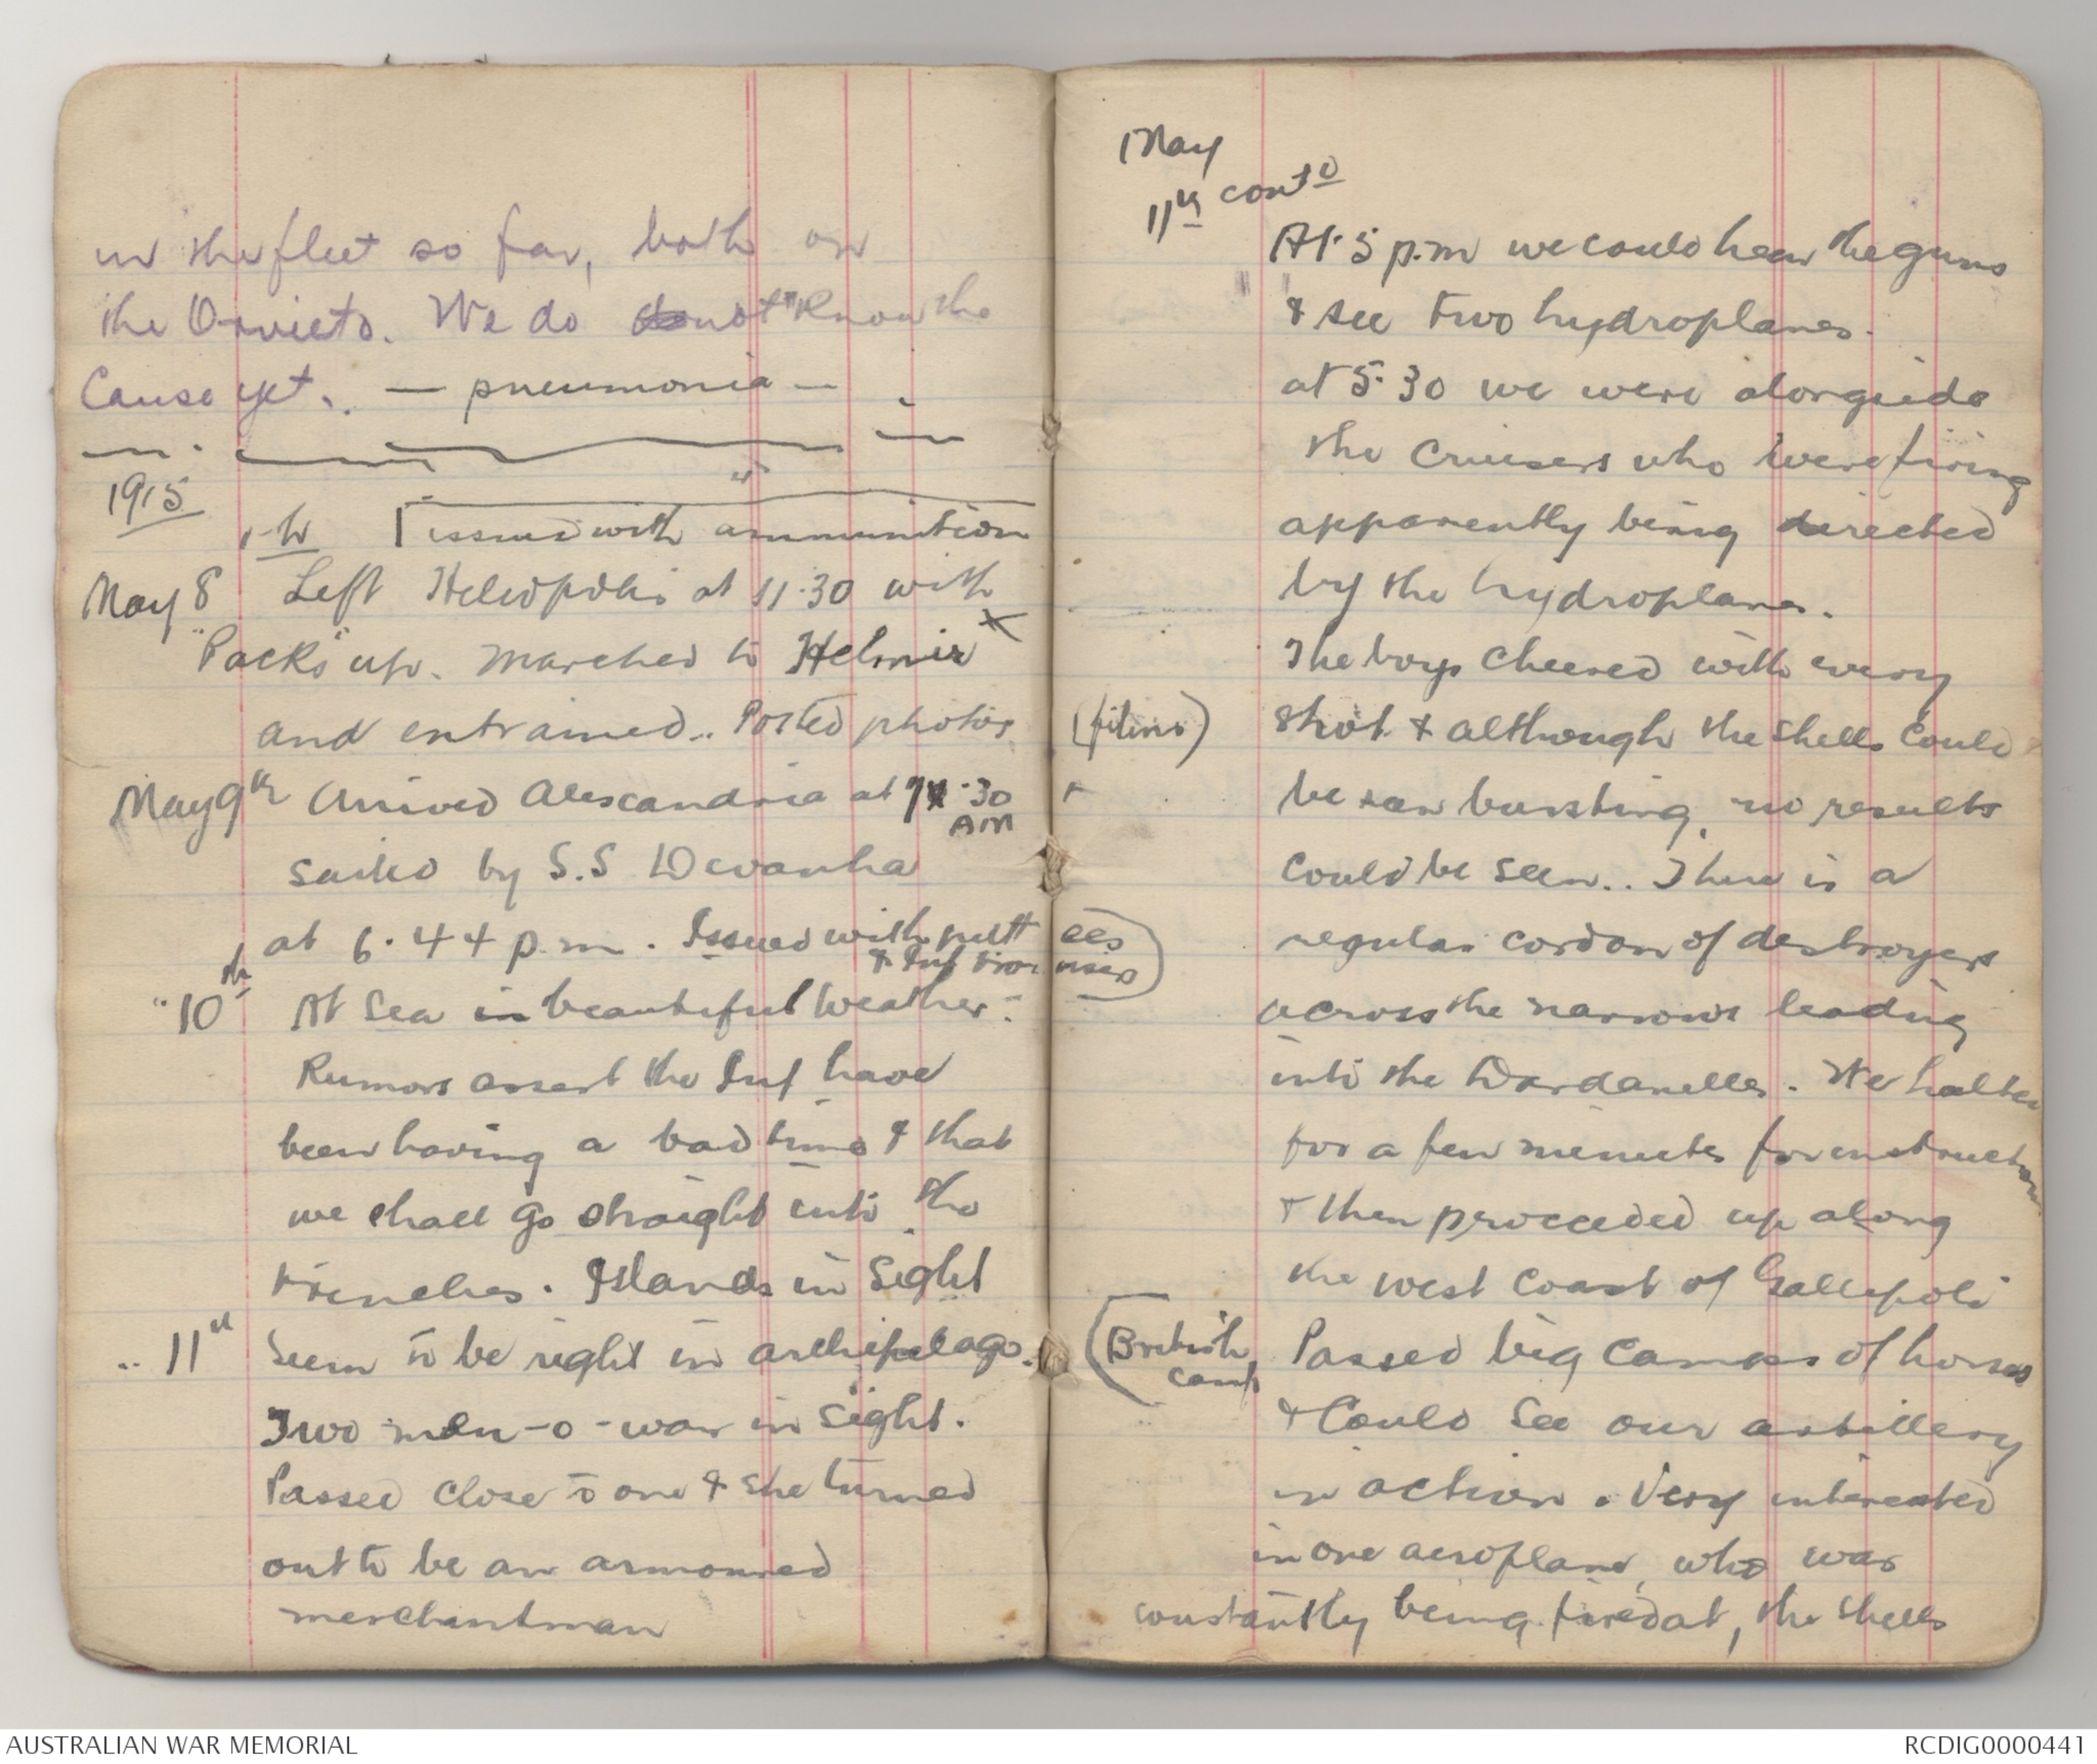 in the fleet so far, both on
the Orvieto. We do not know the
Cause yet. — pneumonia —
1915
issued with ammunition
May 8 Left Heliopolis at 11.30 with
"Packs" up. Marched to Helmir x
and entrained.. Posted photos (films)
May 9th Arrived Alexandria at 7.30 AM
Sailed by S.S Devanha
at 6.44 p.m. Issued with puttees
"10th At Sea in beautiful Weather.
Rumors assert the Inf have
been having a bad time & that
we shall go straight into the
trenches. Islands in Sight
.. 11th Seem to be right in archipelago.
Two men-o-war in Sight.
Passed close to one & she turned
out to be an armoured
merchantman
May
11th contd
At 5 p.m we could hear the guns
& see two hydroplanes.
at 5.30 we were alongside
the Cruisers who were firing
apparently being directed
by the hydroplanes.
The boys Cheered with every
shot & although the shells Could
be seen bursting, no results
Could be seen.. There is a
regular cordon of destroyers
across the narrows leading
into the Dardanelles. We halted
for a few minutes for instructions
& then proceeded up along
the west Coast of Gallipoli
(British camp) Passed big Camps of horses
& Could See our artillery
in action. Very interested
in one aeroplane, who was
constantly being fired at, the shells
AUSTRALIAN WAR MEMORIAL
RCDIG0000441